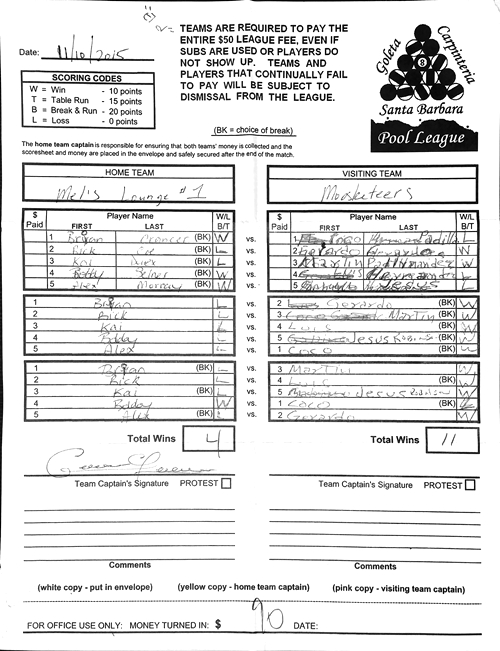 TEAMS ARE REQUIRED TO PAY THE
ENTIRE $50 LEAGUE FEE, EVEN IF
SUBS ARE USED OR PLAYERS DO
NOT SHOW UP. TEAMS AND
PLAYERS THAT CONTINUALLY FAIL
TO PAY WILL BE SUBJECT TO
DISMISSAL FROM THE LEAGUE.
(BK = choice of break)
Date: 11/10/2015
SCORING CODES
W = Win - 10 points
T = Table Run - 15 points
B = Break & Run - 20 points
L = Loss - 0 points
Goleta
Carpinteria
8
Santa Barbara
Pool League
The home team captain is responsible for ensuring that both teams' money is collected and the
scoresheet and money are placed in the envelope and safely secured after the end of the match.
HOME TEAM
Mel's Lounge #1
$ Paid Player Name FIRST LAST W/L B/T
1 Bryan (BK) W
2 Rick L
3 Kai (BK) L
4 W
5 Alex (BK) W
vs.
vs.
vs.
vs.
vs.
1 Bryan L
2 Rick L
3 Kai L
4 Bobby L
5 Alex L
vs.
vs.
vs.
vs.
vs.
1 Bryan (BK) L
2 Rick L
3 Kai (BK) L
4 Bobby W
5 Alex (BK) L
vs.
vs.
vs.
vs.
vs.
Total Wins 4
VISITING TEAM
Moosketeers
$ Paid Player Name FIRST LAST W/L B/T
1 Padilla L
2 Gerardo (BK) W
3 Martin W
4 Hernandez (BK) L
5 L
2 Gerardo (BK) W
3 Martin (BK) W
4 Luis W
5 Jesus (BK) W
1 Coco W
3 Martin W
4 Luis (BK) W
5 Jesus W
1 Coco (BK) L
2 Gerardo W
Total Wins 11
Team Captain's Signature PROTEST
Team Captain's Signature PROTEST
Comments
Comments
(white copy - put in envelope) (yellow copy - home team captain) (pink copy - visiting team captain)
FOR OFFICE USE ONLY: MONEY TURNED IN: $ 90 DATE: